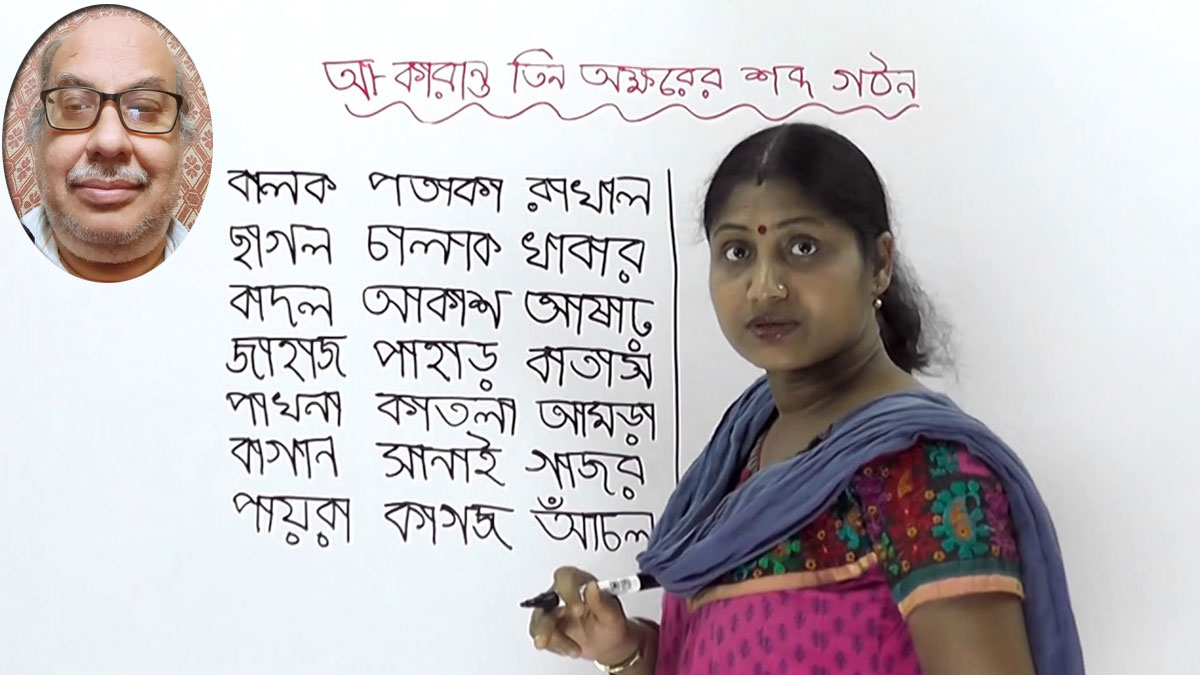 আ-কারান্ত তিন অক্ষরের শব্দ গঠন
বালক পতাকা রাখাল
ছাগল চালাক খাবার
বাদল আকাশ আষাঢ়
জাহাজ পাহাড় বাতাস
পাখনা কাতলা আমড়া
বাগান সানাই গাজর
পায়রা কাগজ আঁচল